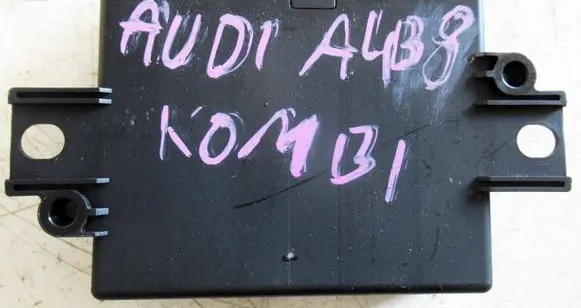 AUDI A4B8
KOMBI